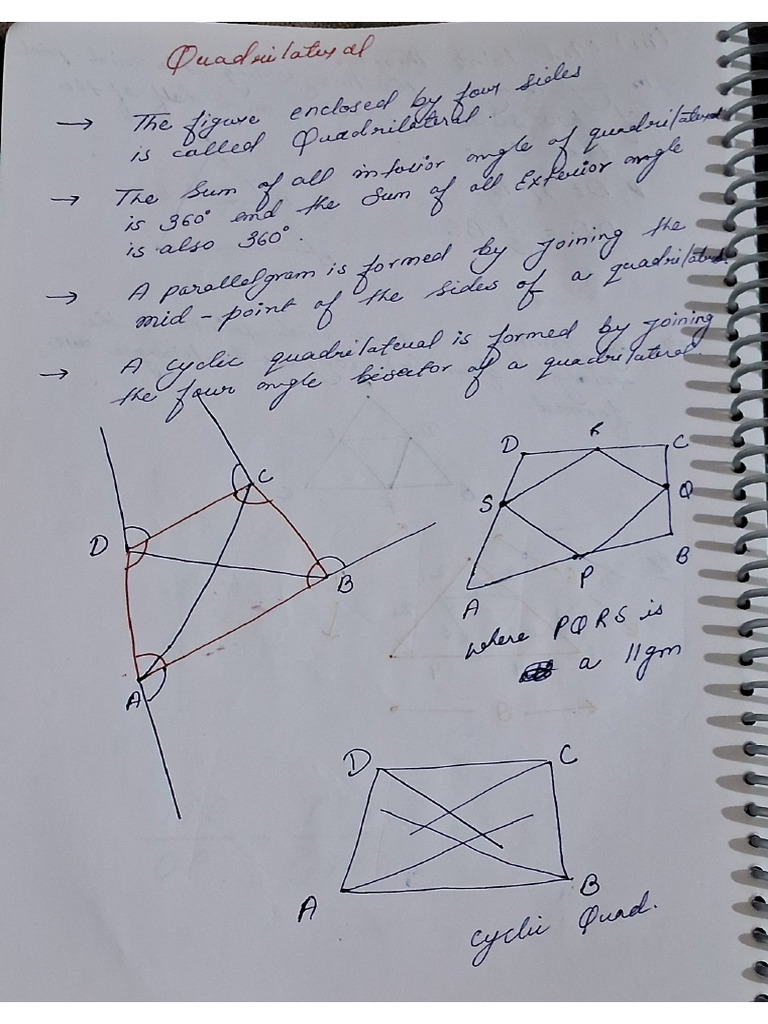 Quadrilateral
→ The figure enclosed by four sides
is called Quadrilateral.
→ The Sum of all interior angle of quadrilateral
is 360° and the Sum of all Exterior angle
is also 360°.
→ A parallelgram is formed by joining the
mid-point of the sides of a quadrilateral.
→ A cyclic quadrilateral is formed by joining
the four angle bisector of a quadrilateral.
C
D
B
A
D R C
S Q
P B
A
where PQRS is
a 11gm
D C
A B
cyclic Quad.